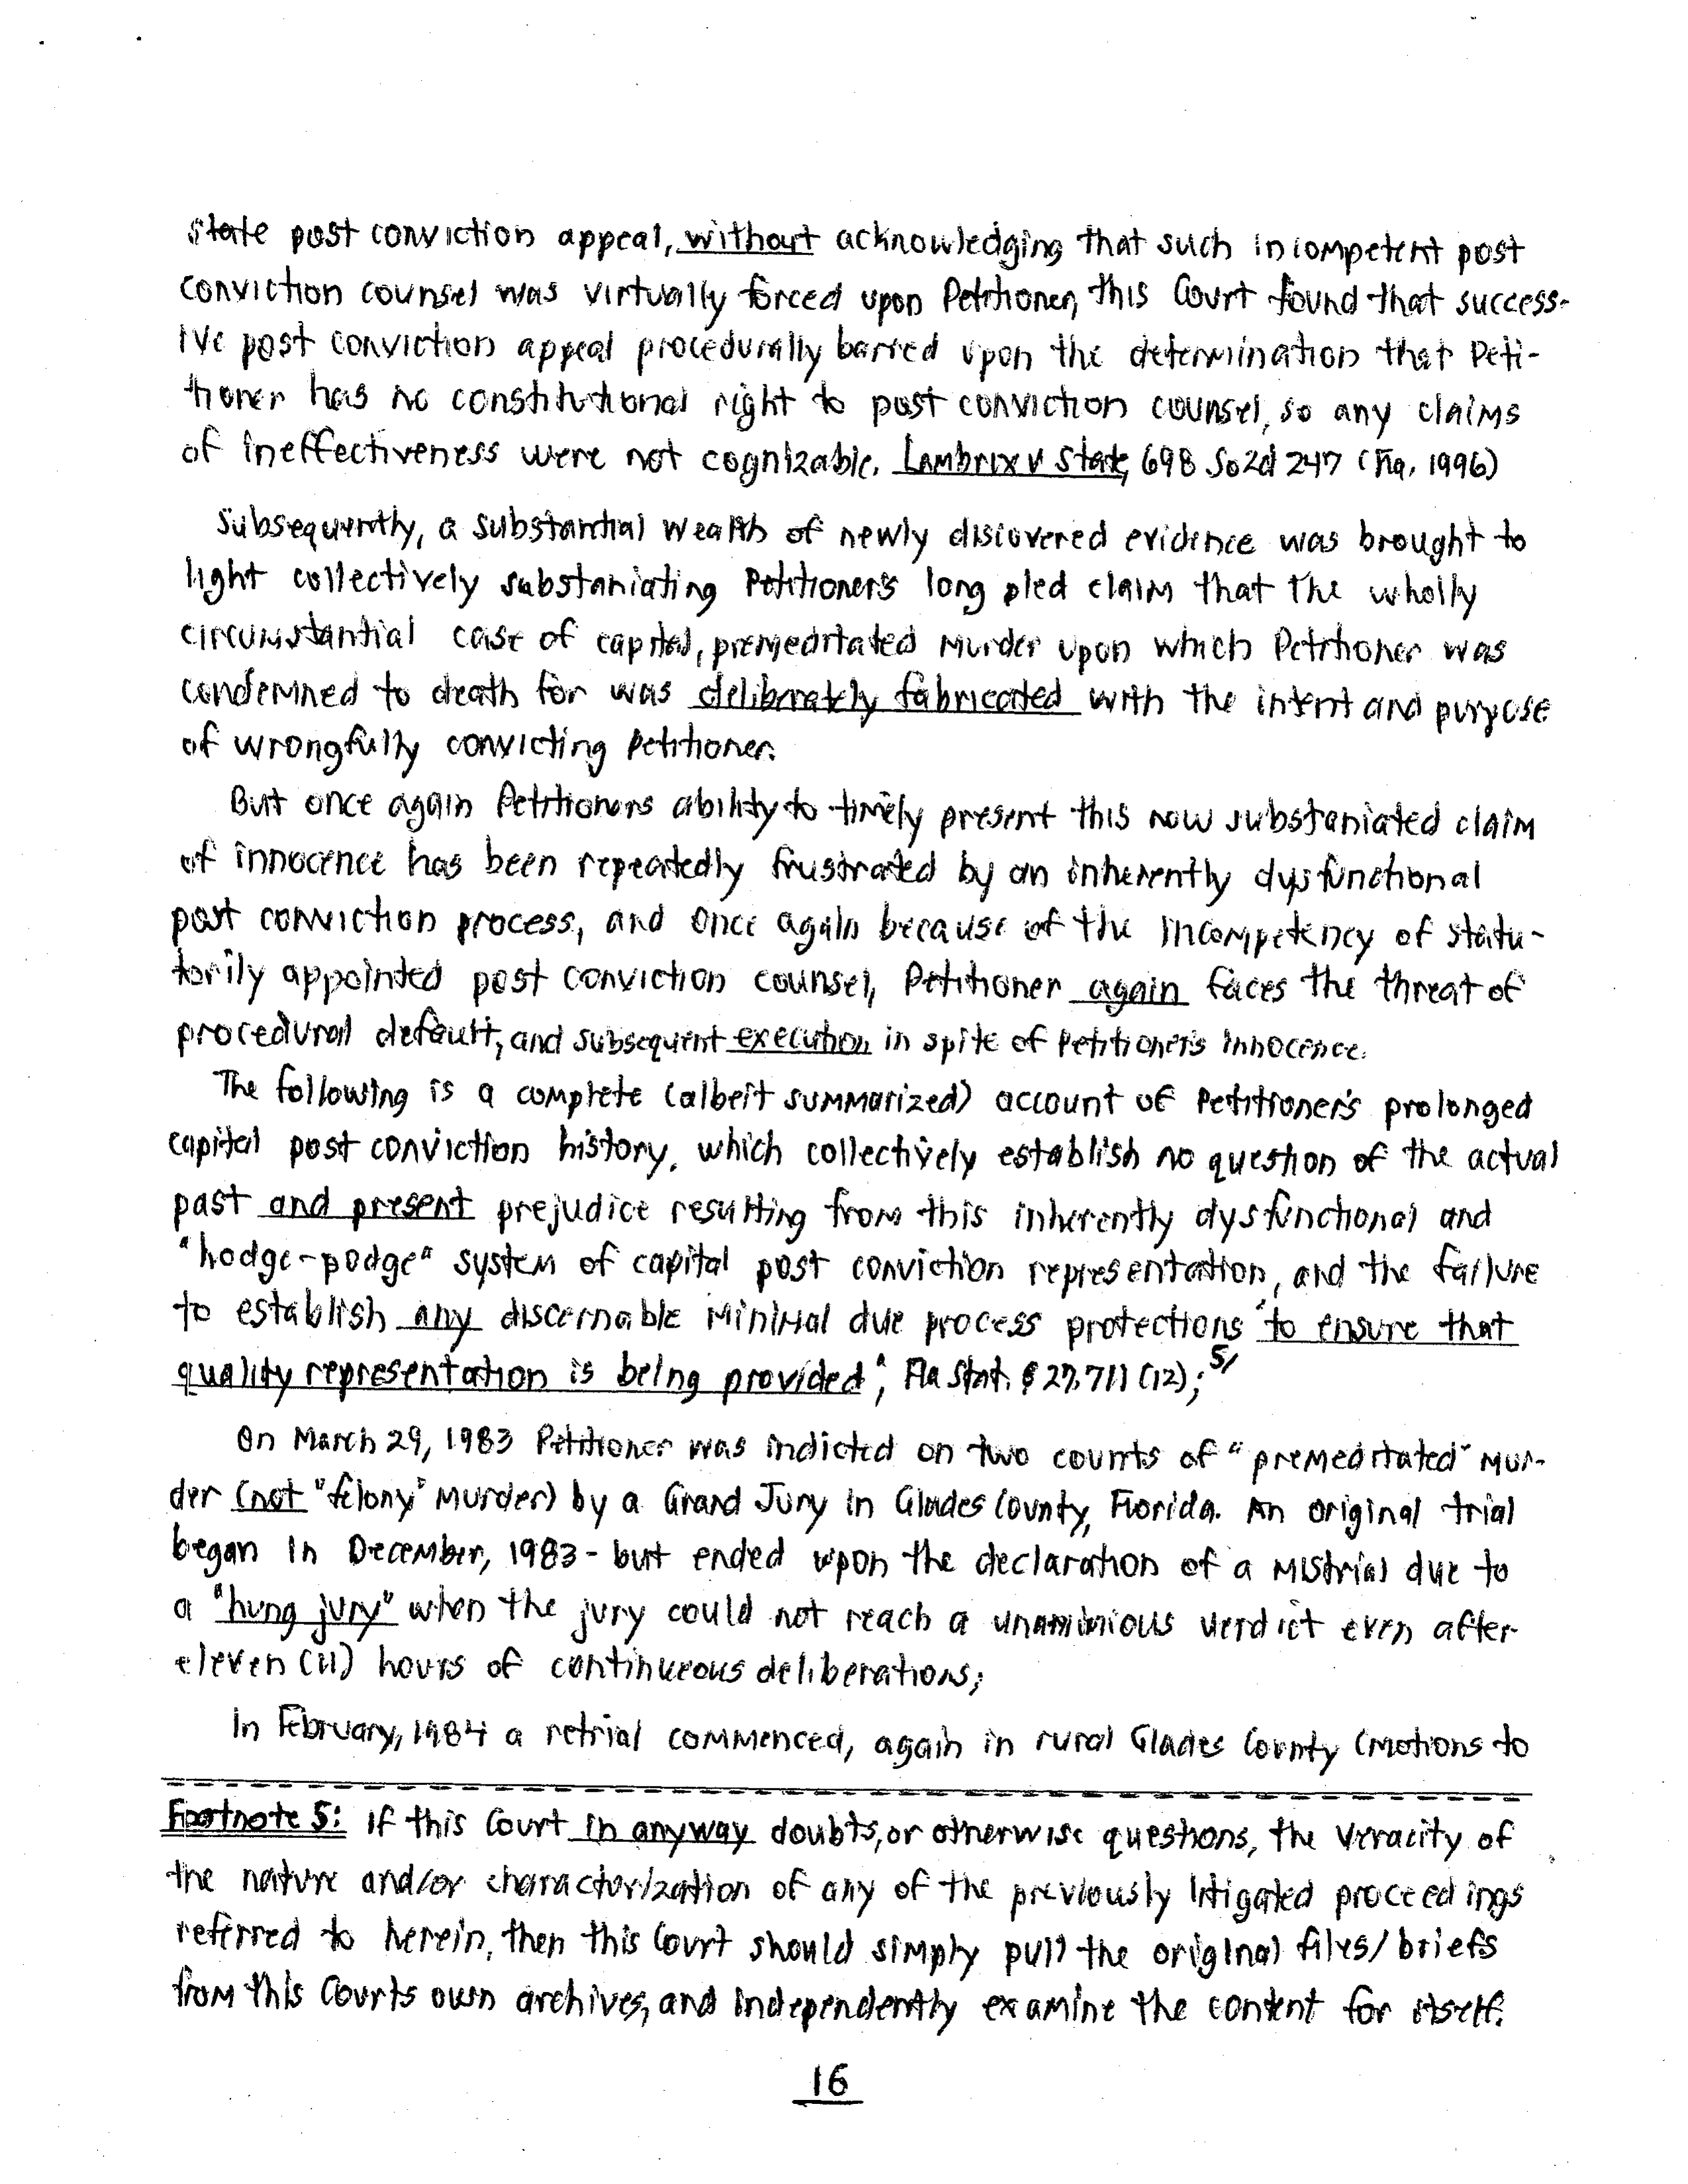 state post conviction appeal, without acknowledging that such incompetent post
conviction counsel was virtually forced upon Petitioner, this Court found that success-
ive post conviction appeal procedurally barred upon the determination that Peti-
tioner has no constitutional right to post conviction counsel, so any claims
of ineffectiveness were not cognizable. Lambrix v State, 698 So2d 247 (Fla. 1996)
Subsequently, a substantial wealth of newly discovered evidence was brought to
light collectively substaniating Petitioner's long pled claim that the wholly
circumstantial case of capital, premeditated murder upon which Petitioner was
condemned to death for was deliberately fabricated with the intent and purpose
of wrongfully convicting Petitioner.
But once again Petitioners ability to timely present this now substaniated claim
of innocence has been repeatedly frustrated by an inherently dysfunctional
post conviction process, and once again because of the incompetency of statu-
torily appointed post conviction counsel, Petitioner again faces the threat of
procedural default, and subsequent execution in spite of Petitioner's innocence.
The following is a complete (albeit summarized) account of Petitioner's prolonged
capital post conviction history, which collectively establish no question of the actual
past and present prejudice resulting from this inherently dysfunctional and
"hodge-podge" system of capital post conviction representation, and the failure
to establish any discernable minimal due process protections "to ensure that
quality representation is being provided", Fla Stat. § 27.711 (12); 5/
On March 29, 1983 Petitioner was indicted on two counts of "premeditated" mur-
der (not "felony" murder) by a Grand Jury in Glades County, Florida. An original trial
began in December, 1983 - but ended upon the declaration of a mistrial due to
a "hung jury" when the jury could not reach a unaminious verdict even after
eleven (11) hours of continueous deliberations;
In February, 1984 a retrial commenced, again in rural Glades County (motions to
Footnote 5: If this Court in anyway doubts, or otherwise questions, the veracity of
the nature and/or characterization of any of the previously litigated proceedings
referred to herein, then this Court should simply pull the original files/briefs
from this Courts own archives, and independently examine the content for itself.
16